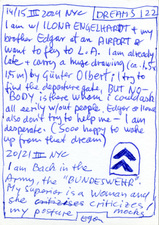 14/15 III 2021 NYC DREAMS | 22
I am w/ ILONA ENGELHARDT + my
brother Edgar at an AIRPORT &
want to fly to L.A. I am already
late + carry a huge drawing (ca. 1,5x
1,5 m) by Günter Olbert; I try to
find the departure gate, BUT NO-
BODY is there whom I could ask
all eerily w/out people. Edgar + Ilona
also don't try to help me – I am
desperate. (Sooo happy to wake
up from that dream)
20/21 III NYC
I am Back in the
Army, the "BUNDESWEHR"
My superior is a woman and
she criticizes criticizes
my posture mocks